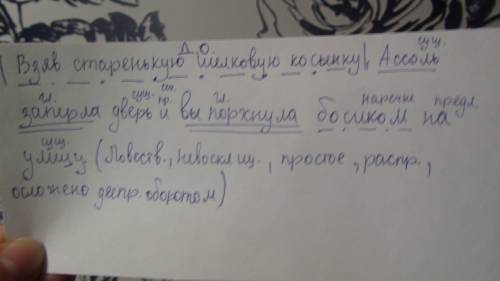 Д.О. сущ.
| Взяв старенькую шелковую косынку|, Ассоль
гл. сущ. гл. наречие предл.
заперла дверь и выпорхнула босиком на
сущ.
улицу (Повеств., невосклиц., простое, распр.,
осложнено деепр. оборотом)